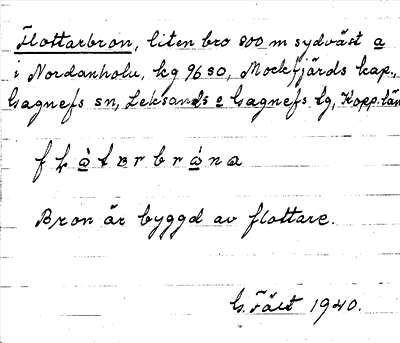 Flottarbron, liten bro 800 m sydväst a
i Nordanholn, kg 9680, Mockfjärds kap.,
Gagnefs sn, Leksands o Gagnefs tg, Kopp. län
Bron är byggd av flottare.
G. Fält 1940.